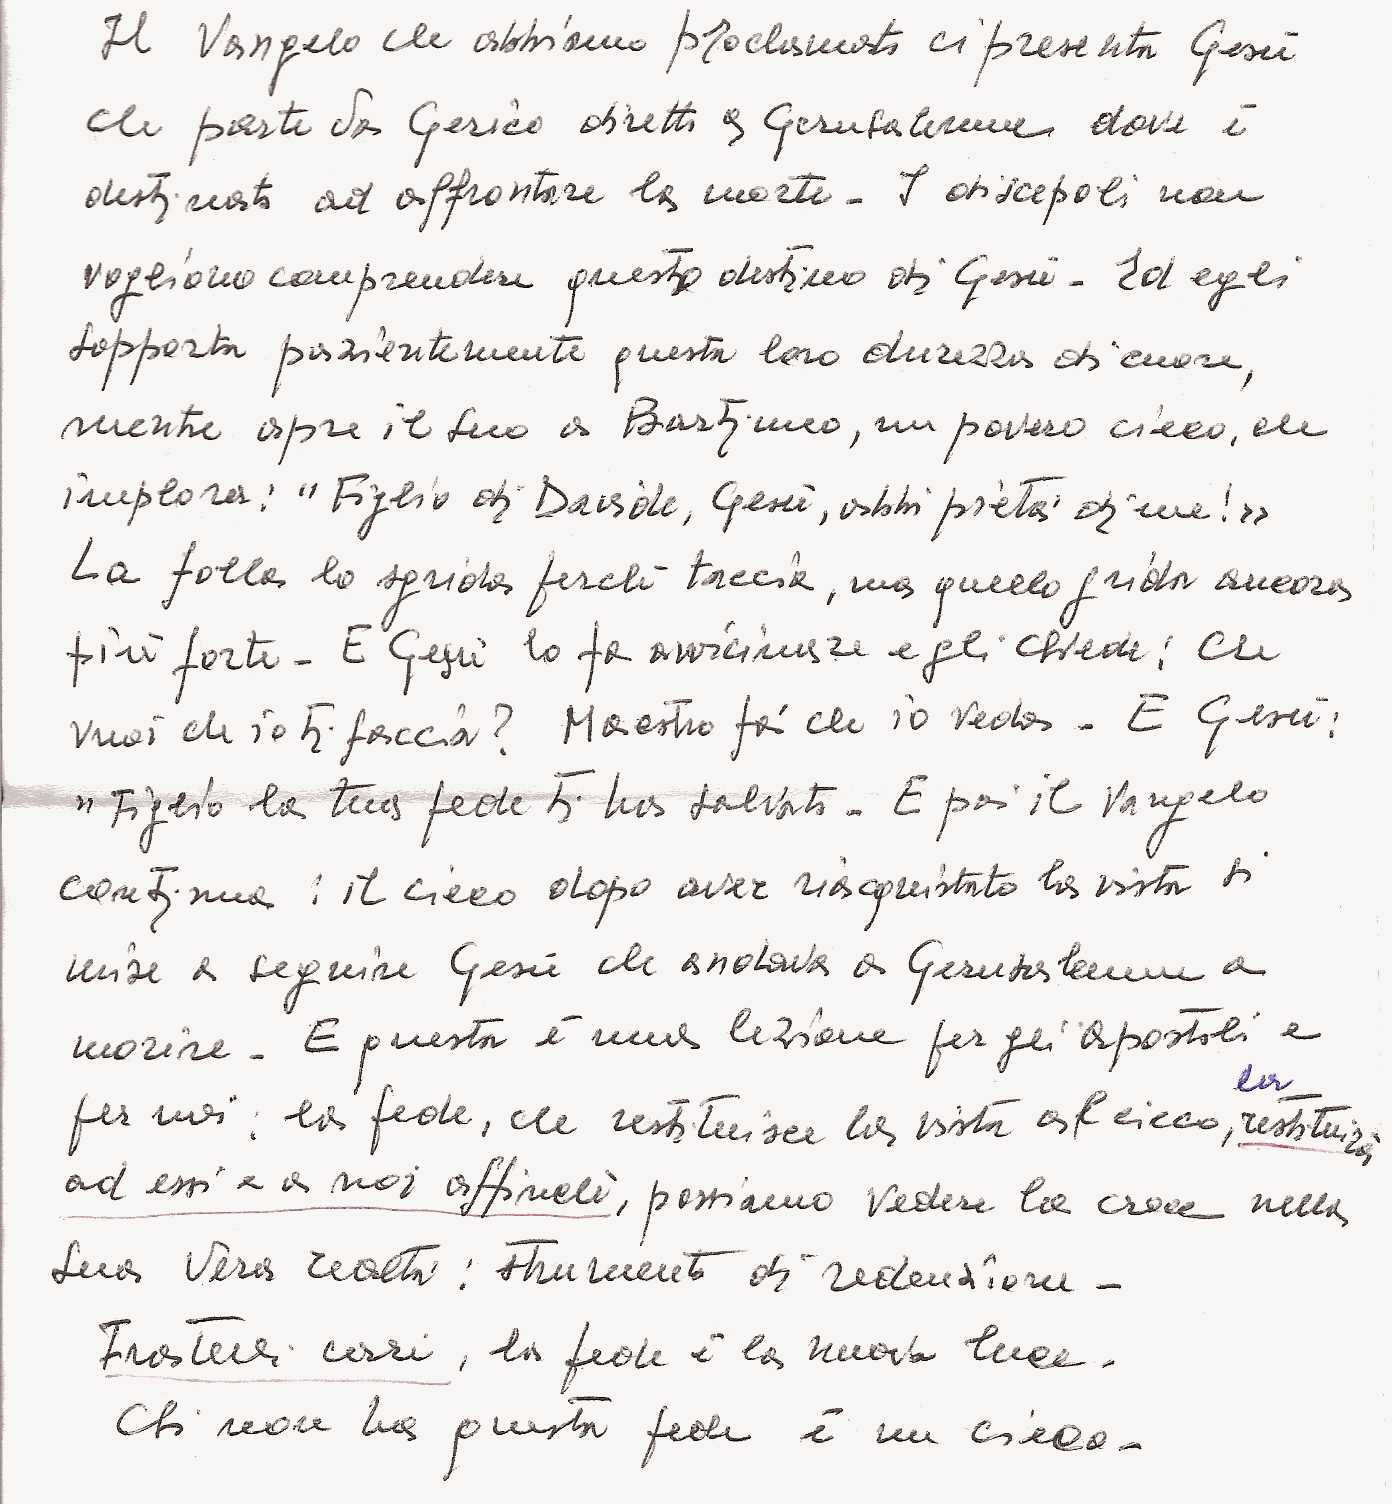 Il Vangelo che abbiamo proclamato ci presenta Gesù
che parte da Gerico diretto a Gerusalemme dove è
destinato ad affrontare la morte - I discepoli non
vogliono comprendere questo destino di Gesù - Ed egli
sopporta pazientemente questa loro durezza di cuore,
mentre apre il suo a Bartimeo, un povero cieco, che
implora: "Figlio di Davide, Gesù, abbi pietà di me!»
La folla lo sgrida perché taccia, ma quello grida ancora
più forte - E Gesù lo fa avvicinare e gli chiede: Che
vuoi che io ti faccia? Maestro fa' che io veda - E Gesù:
"Figlio la tua fede ti ha salvato - E poi il Vangelo
continua: il cieco dopo aver riacquistato la vista si
mise a seguire Gesù che andava a Gerusalemme a
morire - E questa è una lezione per gli apostoli e
per noi: la fede, che restituisce la vista al cieco, la restituirà
ad essi e a noi affinché, possiamo vedere la croce nella
sua vera realtà: strumento di redenzione -
Fratelli cari, la fede è la nuova luce.
Chi non ha questa fede è un cieco -